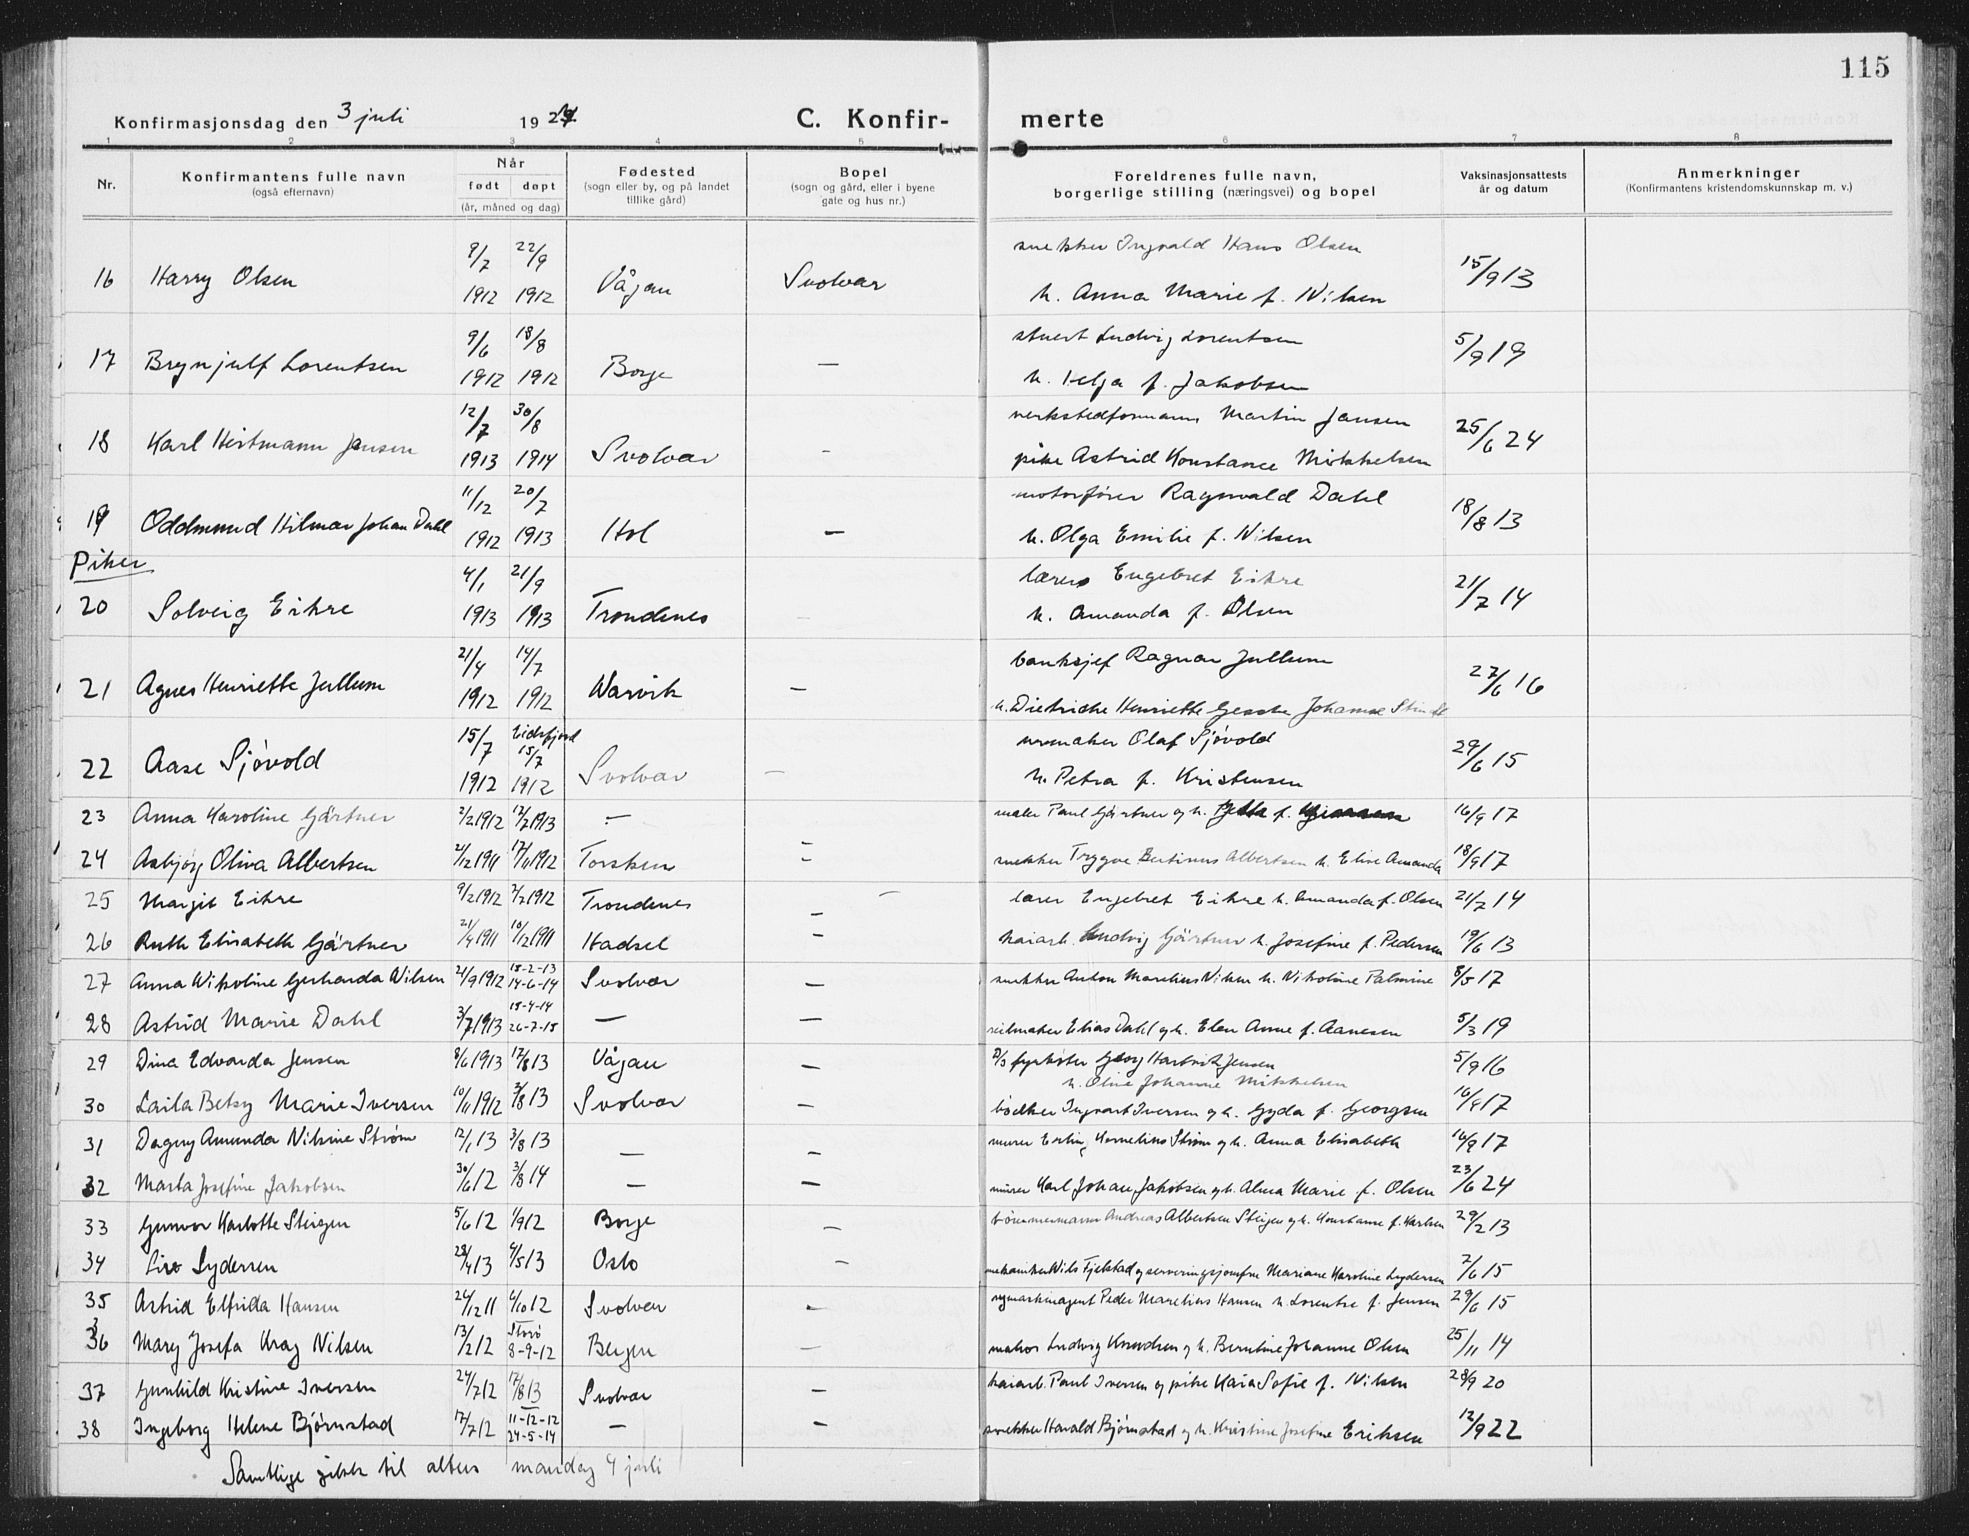 115
Konfirmasjonsdag den 3 juli 1927.
C. Konfir- merte
1 2 3 4 5 6 7 8
Nr.
Konfirmantens fulle navn
(også efternavn)
Når
født døpt
(år, måned og dag)
Fødested
(sogn eller by, og på landet
tillike gård)
Bopel
(sogn og gård, eller i byene
gate og hus nr.)
Foreldrenes fulle navn,
borgerlige stilling (næringsvei) og bopel
Vaksinasjonsattests
år og datum
Anmerkninger
(Konfirmantens kristendomskunnskap m. v.)
16 Harry Olsen 9/7 1912 22/9 1912 Vågan Svolvær snekker Ingvald Hans Olsen
h. Anna Marie f. Nilsen 15/9 13
17 Brynjulf Lorentsen 9/6 1912 18/8 1912 Borge — stuert Ludvig Lorentsen
h. Helga f. Jakobsen 5/9 19
18 Karl Hartmann Jensen 12/7 1913 30/8 1914 Svolvær - verkstedformann Martin Jansen
pike Astrid Konstance Mikkelsen 25/6 24
19 Oddmund Hilmar Johan Dahl 11/12 1912 20/7 1913 Hol — motorfører Ragnvald Dahl
h. Olga Emilie f. Nilsen 18/8 13
Piker
20 Solveig Eikre 4/1 1913 21/9 1913 Trondenes — lærer Engebret Eikre
h. Amanda f. Olsen 21/7 14
21 Agnes Henriette Jullum 21/4 1912 14/7 1912 Narvik — banksjef Ragnar Jullum
h. Dietriche Henriette Johanne 27/6 16
22 Aase Sjövold 15/7 1912 Eidsfjord 15/7 1912 Svolvær — urmaker Olaf Sjövold
h. Petra f. Kristensen 29/6 15
23 Anna Karoline Gärtner 2/2 1912 12/2 1913 — — maler Paul Gärtner og h. f. 16/9 17
24 Asbjög Oliva Albertsen 2/12 1911 17/11 1912 Torsken — snekker Trygve Bertinus Albertsen h. Elise Amanda 18/9 17
25 Margit Eikre 9/2 1912 7/7 1912 Trondenes — lærer Engebret Eikre h. Amanda f. Olsen 21/7 14
26 Ruth Elisabeth Gärtner 21/4 1911 10/12 1911 Hadsel — kaiarb. Ludvig Gärtner h. Josefine f. Pedersen 19/6 13
27 Anna Nikoline Gerharda Nilsen 21/9 1912 15-2-13 14-6-14 Svolvær — snekker Anton Marelius Nilsen h. Nikoline Palmine 8/5 17
28 Astrid Marie Dahl 3/7 1913 15-4-14 26-7-15 — — seilmaker Elias Dahl og h. Elen Anne f. Aanesen 5/3 19
29 Dina Edvarda Jensen 8/6 1913 17/8 13 Vågan — D/S fyrbøter Georg Hartvik Jensen
h. Oline Johanne Mikkelsen 5/9 16
30 Laila Betsy Marie Iversen 10/11 1912 3/8 13 Svolvær — bødker Ingvart Iversen og h. Gyda f. Georgsen 16/9 17
31 Dagny Amunda Nilsine Strøm 12/1 13 3/8 13 — — murer Erling Kornelius Strøm og h. Anna Elisabeth 16/9 17
32 Marta Josefine Jakobsen 30/6 12 3/8 14 — — murer Karl Johan Jakobsen og h. Alma Marie f. Olsen 23/6 24
33 Gunvor Karlotte Steigen 5/6 12 1/9 12 Borge — tömmermann Andreas Albertsen Steigen og h. Konstanse f. Karlsen 29/2 13
34 Liv Lydersen 28/4 13 4/5 13 Oslo — mekaniker Nils Fjelstad og serveringsjomfru Mariane Karoline Lydersen 7/6 15
35 Astrid Elfrida Hansen 24/12 11 6/10 12 Svolvær — symaskinagent Peder Marelius Hansen h. Lorentse f. Jensen 29/6 15
36 Mary Josefa Krag Nilsen 13/2 12 Storö 8-9-12 Bergen — matros Ludvig Knudsen og h. Berntine Johanne Olsen 25/11 14
37 Gunhild Kristine Iversen 24/7 12 17/8 13 Svolvær — kaiarb. Paul Iversen og pike Kaia Sofie f. Nilsen 28/9 20
38 Ingeborg Helene Bjørnstad 17/7 12 11-12-12 24-5-14 — — snekker Harald Bjørnstad og h. Kristine Josefine Eriksen 12/9 22
Samtlige gikk til alters mandag 4 juli